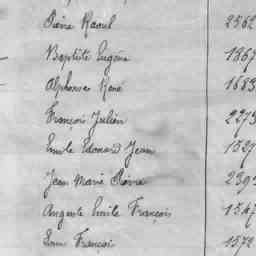 Pierre Raoul 2562
Baptiste Eugène 1867
Alphonse René 1683
François Julien 2273
Emile Edouard Jean 1527
Jean Marie Pierre 2393
Auguste Emile François 1547
Louis François 1572